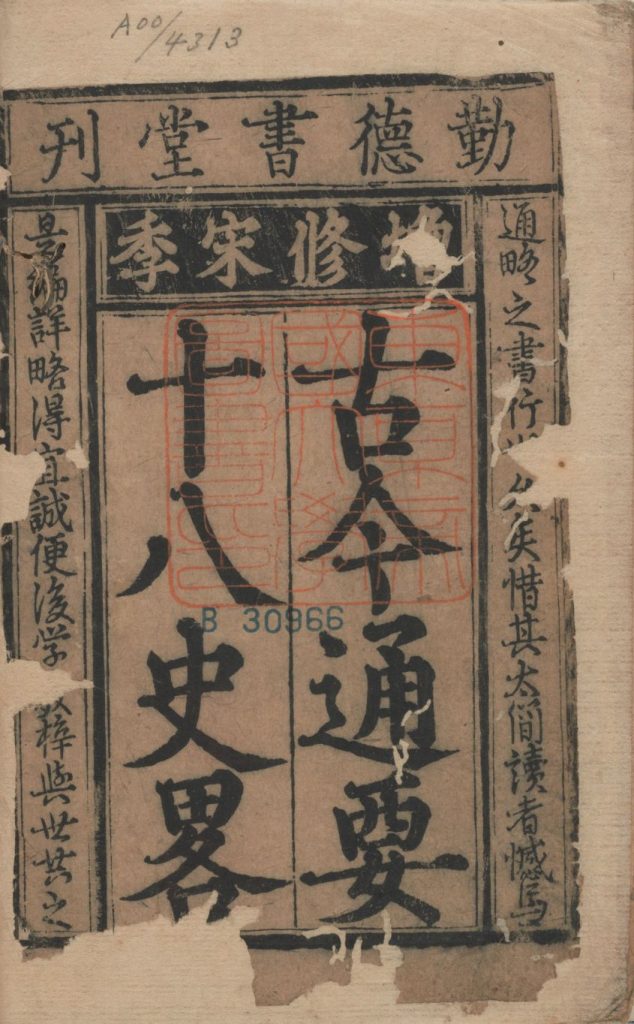 A00/4313
勤德書堂刊
增修宋季
通畧之書行世久矣惜其太簡讀者憾焉
古今通要
十八史畧
是編詳略得宜誠便後学 梓與世共之
東京帝國大學圖書印
B 30966